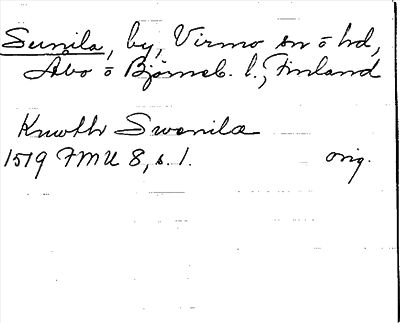 Sunila, by, Virmo sn o hd,
Åbo o Björneb. l., Finland
Knwth Swnila
1519 FMU 8, s. 1. orig.